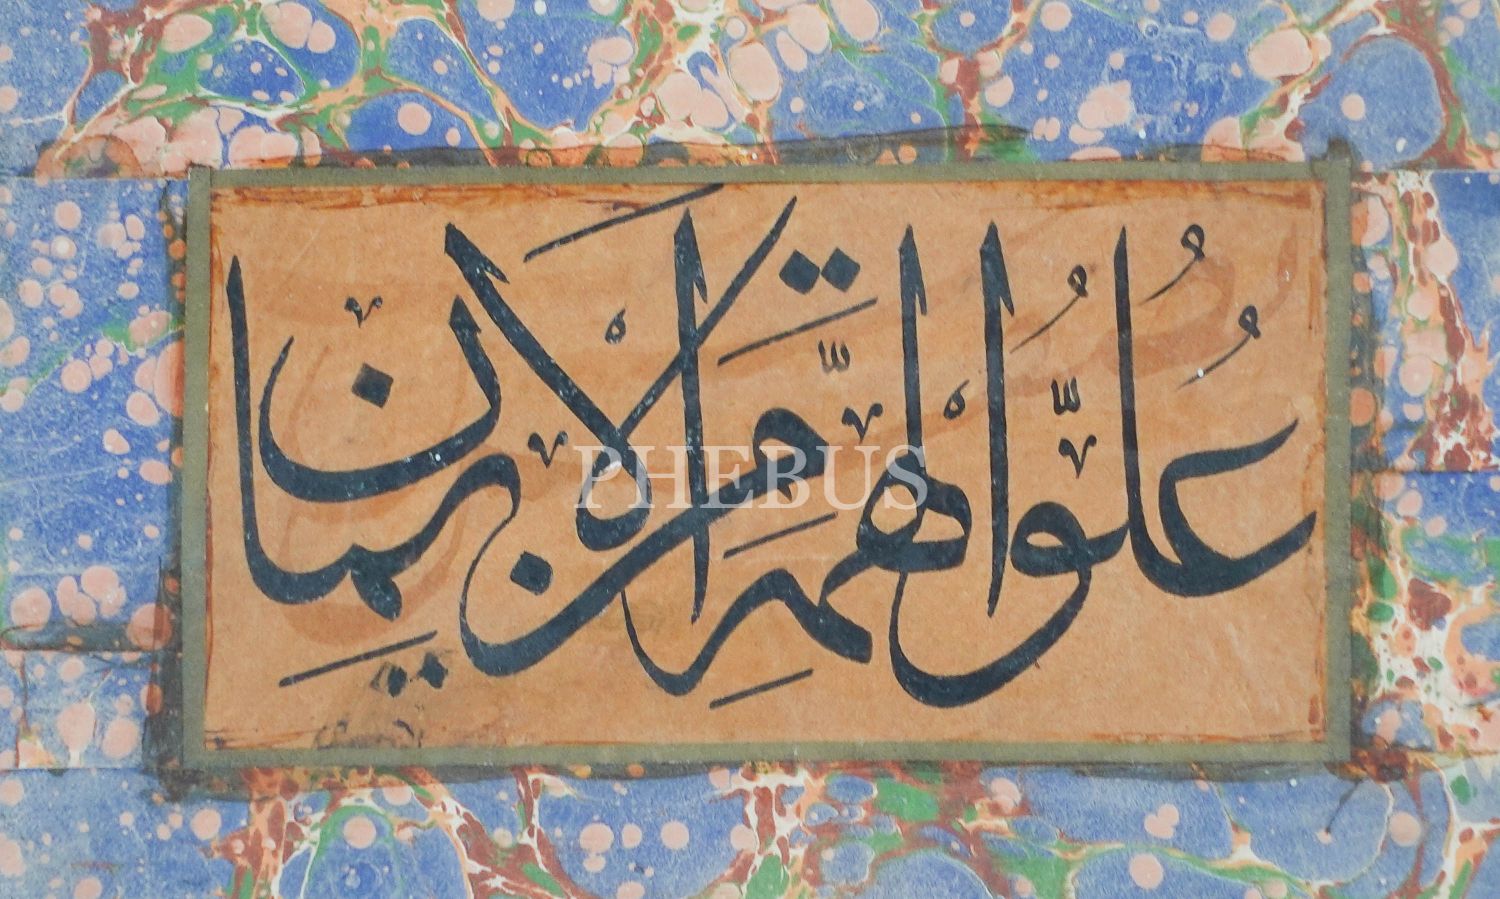 عُلُوُّ الْهِمَّةِ مِنَ الْاِيمَانِ
PHEBUS